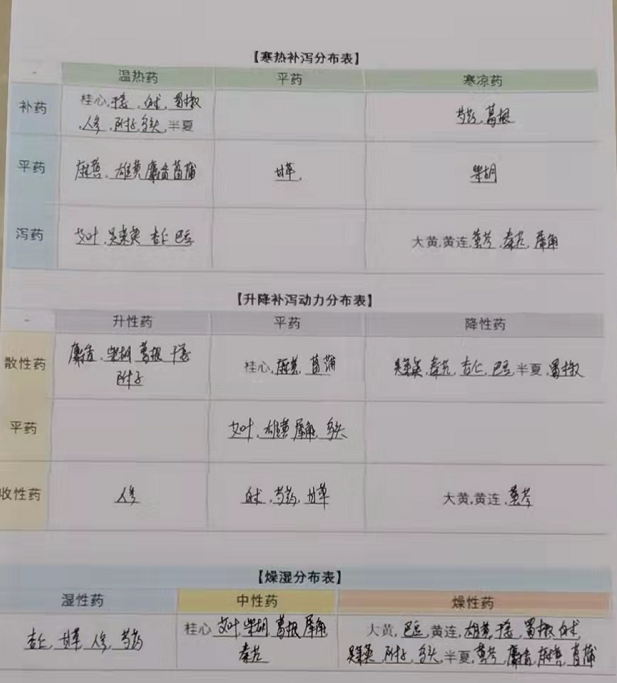 【寒热补泻分布表】
- 温热药 平药 寒凉药
补药 桂心,干姜,白术,蜀椒 芍药,葛根
,人参,附子,乌头,半夏
平药 麻黄,雄黄,麝香,菖蒲 甘草, 柴胡
泻药 艾叶,吴茱萸,杏仁,巴豆 大黄,黄连,黄芩,秦艽,犀角
【升降补泻动力分布表】
- 升性药 平药 降性药
散性药 麝香,柴胡,葛根,干姜 桂心,麻黄,菖蒲 吴茱萸,秦艽,杏仁,巴豆,半夏,蜀椒
附子
平药 艾叶,雄黄,犀角,乌头
收性药 人参 白术,芍药,甘草 大黄,黄连,黄芩
【燥湿分布表】
湿性药 中性药 燥性药
杏仁,甘草,人参,芍药 桂心,艾叶,柴胡,葛根,犀角 大黄,巴豆,黄连,雄黄,干姜,蜀椒,白术
秦艽 吴茱萸,附子,乌头,半夏,黄芩,麝香,麻黄,菖蒲